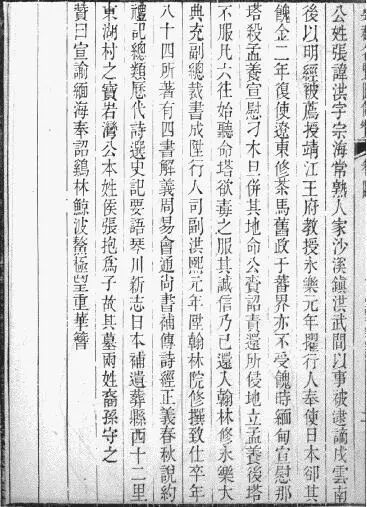 公姓張諱洪字宗海常熟人家沙溪鎮洪武間以事被逮謫戍雲南
後以明經被薦授靖江王府教授永樂元年擢行人奉使日本卻其
餽金二年復使遼東修茶馬舊政于蕃界亦不受餽時緬甸宣慰那
塔殺孟養宣慰刁木旦併其地命公賫詔責還所侵地立孟養後塔
不服凡六往始聽命塔欲毒之服其誠信乃已還入翰林修永樂大
典充副總裁書成陞行人司副洪熙元年陞翰林院修撰致仕卒年
八十四所著有四書解義周易會通尚書補傳詩經正義春秋說約
禮記總類歷代詩選史記要語琴川新志日本補遺葬縣西十二里
東湖村之寶岩灣公本姓侯張抱為子故其墓兩姓裔孫守之
贊曰宣諭緬海奉詔鷄林鯨波鰲極望重華簪